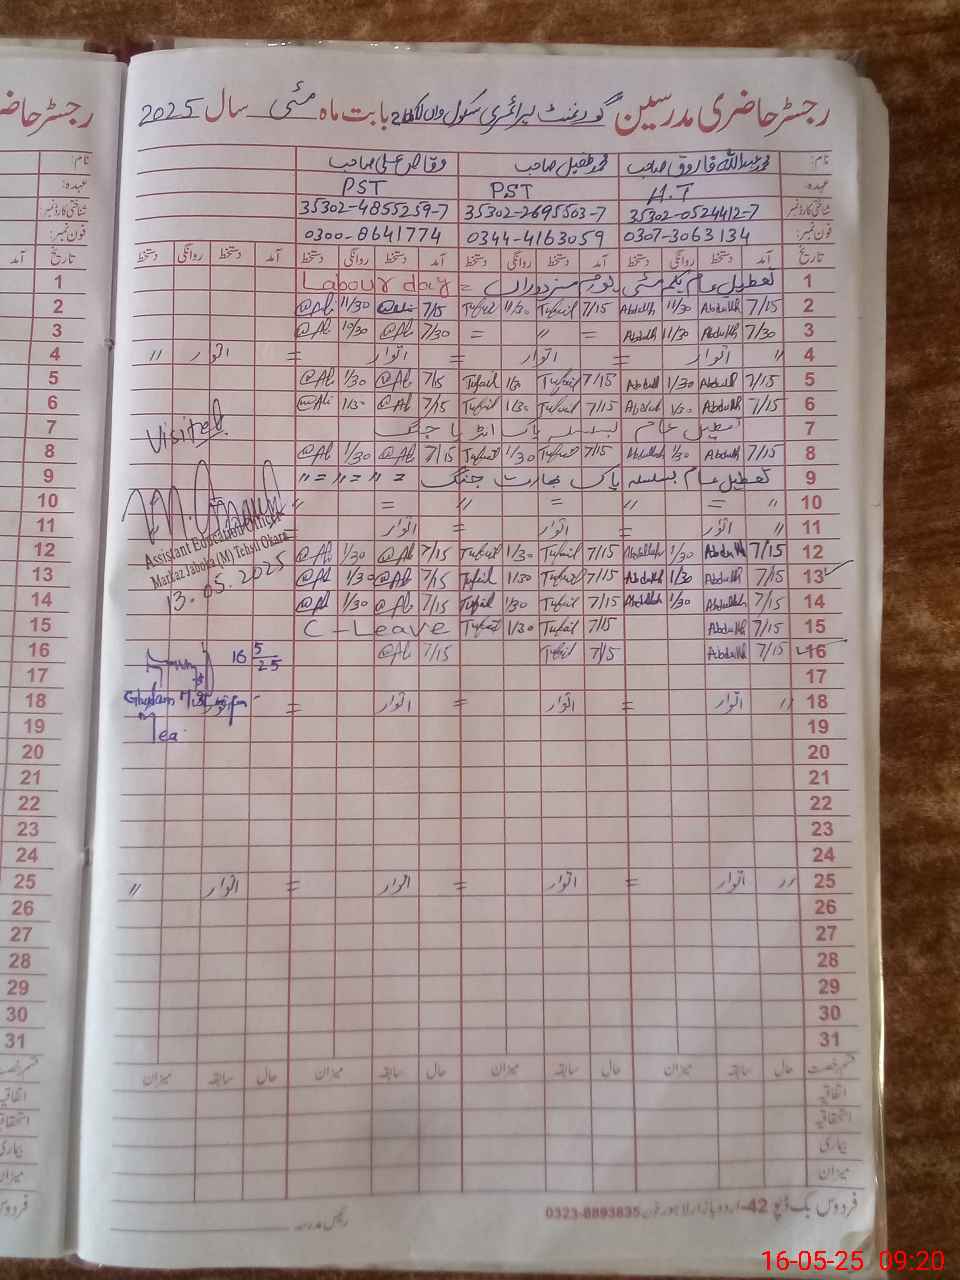 رجسٹر حاضری مدرسین گورنمنٹ پرائمری سکول واں بابت ماہ مئی سال 2025
نام: محمد عبداللہ فاروق صاحب محمد طفیل صاحب وقاص علی صاحب
عہدہ: H.T PST PST
شناختی کارڈ نمبر 35302-0524412-7 35302-2695503-7 35302-4855259-7
فون نمبر: 0307-3063134 0344-4163059 0300-8641774
تاریخ آمد دستخط روانگی دستخط آمد دستخط روانگی دستخط آمد دستخط روانگی دستخط آمد دستخط روانگی دستخط
1 تعطیل عام یکم مئی یوم مزدوراں = Labour day
2 7/15 Abdullh 11/30 Abdullh 7/15 Tufail 11/30 Tufail 7/15 @Ali 11/30 @Ali
3 7/30 Abdullh 11/30 Abdullh = " = 7/30 @Ali 11/30 @Ali
4 " اتوار = اتوار = اتوار = اتوار "
5 7/15 Abdullh 1/30 Abdull 7/15 Tufail 1/30 Tufail 7/15 @Ali 1/30 @Ali
6 7/15 Abdullh 1/30 Abdullh 7/15 Tufail 1/30 Tufail 7/15 @Ali 1/30 @Ali
7 تعطیل عام بسلسلہ پاک انڈیا جنگ
Visited
8 7/15 Abdullh 1/30 Abdullah 7/15 Tufail 1/30 Tufail 7/15 @Ali 1/30 @Ali
9 تعطیل عام بسلسلہ پاک بھارت جنگ = " = " = "
10 " = " = " = "
11 " اتوار = اتوار = اتوار
Assistant Education Officer
Markaz Jaboka (M) Tehsil Okara
13.05.2025
12 7/15 Abdullh 1/30 Abdullah 7/15 Tufail 1/30 Tufail 7/15 @Ali 1/30 @Ali
13 7/15 Abdullh 1/30 Abdullh 7/15 Tufail 1/30 Tufail 7/15 @Ali 1/30 @Ali
14 7/15 Abdullah 1/30 Abdullah 7/15 Tufail 1/30 Tufail 7/15 @Ali 1/30 @Ali
15 7/15 Abdullh 7/15 Tufail 1/30 Tufail C-Leave
16 7/15 Abdullh 7/15 Tufail 7/15 @Ali
16 5/25
17
18 " اتوار = اتوار = اتوار = اتوار
Ghulam
19
20
21
22
23
24
25 " اتوار = اتوار = اتوار = اتوار "
26
27
28
29
30
31
قسم رخصت حال سابقہ میزان حال سابقہ میزان حال سابقہ میزان حال سابقہ میزان
اتفاقیہ
استحقاقیہ
بیماری
میزان
فردوس بک ڈپو 42-اردو بازار لاہور فون 0323-8893835
رئیس مدرسہ
16-05-25 09:20